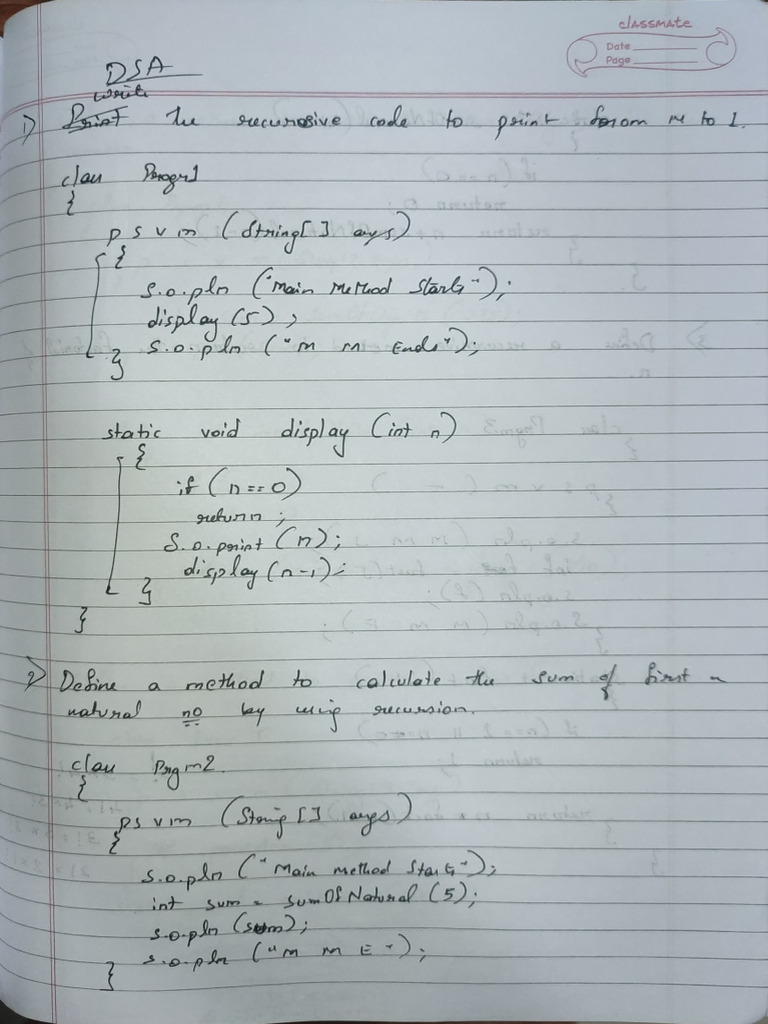 classmate
Date
Page
DSA
write
1) Print the recursive code to print from n to 1.
class Progm1
{
p s v m (String[] args)
{
S.o.pln ("Main Method Starts");
display (5);
S.o.pln ("M M Ends");
}
static void display (int n)
{
if (n==0)
return;
S.o.print (n);
display (n-1);
}
}
2) Define a method to calculate the sum of first n
natural no by using recursion.
class Prgm2.
{
p s v m (String [] args)
{
S.o.pln ("Main method Starts");
int sum = sumOfNatural (5);
S.o.pln (sum);
S.o.pln ("M M E");
}